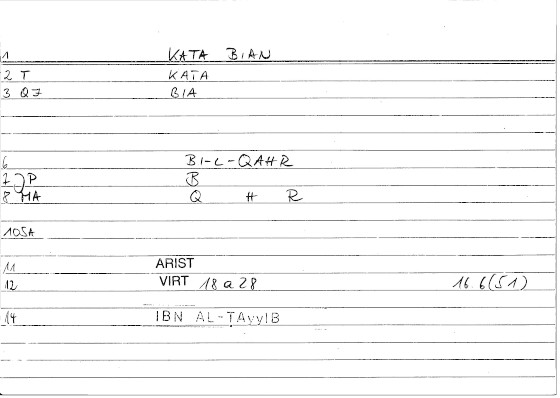 1 KATA BIAN
2 T KATA
3 QJ BIA
6 BI-L-QAHR
7 P B
8 MA Q H R
105A
11 ARIST
12 VIRT 18 a 28 16.6(51)
14 IBN AL-TAyyIB